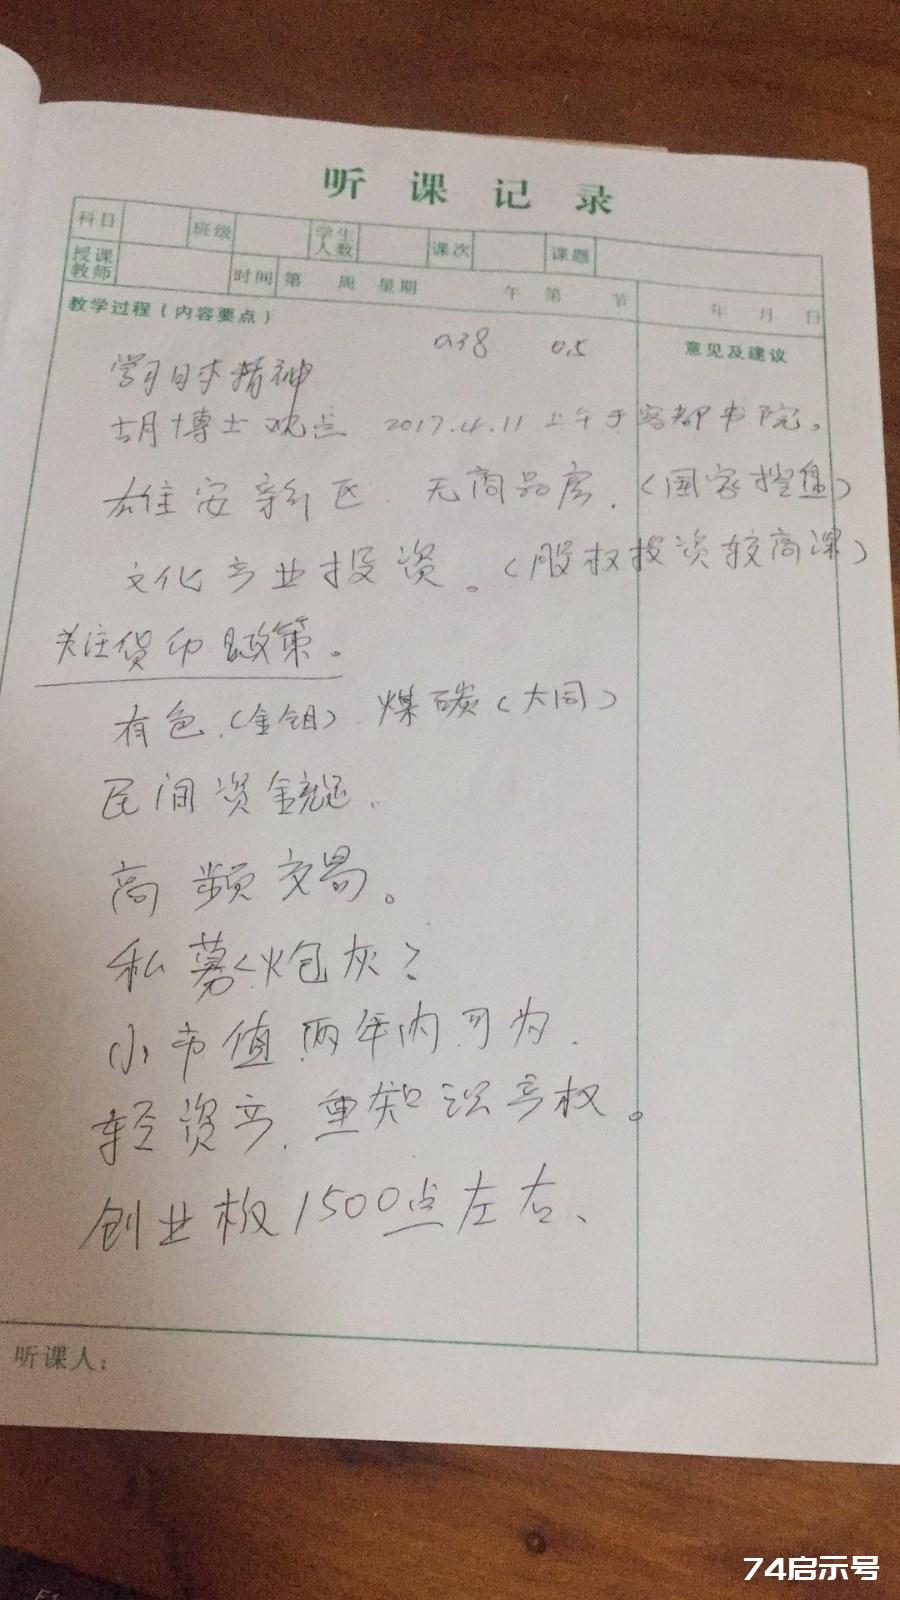 听课记录
科目 班级 学生人数 课次 课题
授课教师 时间 第 周 星期 午 第 节 年 月 日
教学过程（内容要点） 意见及建议
0.38 0.5
学习日本精神
胡博士观点 2017.4.11 上午于客都书院。
雄安新区. 无商品房.（国家控盘）
文化产业投资。（股权投资较高深）
关注货币政策。
有色.（金钼） 煤碳（大同）
民间资金
高频交易。
私募 炮灰？
小市值两年内可为.
轻资产.重知识产权。
创业板1500点左右、
听课人：
74启示号